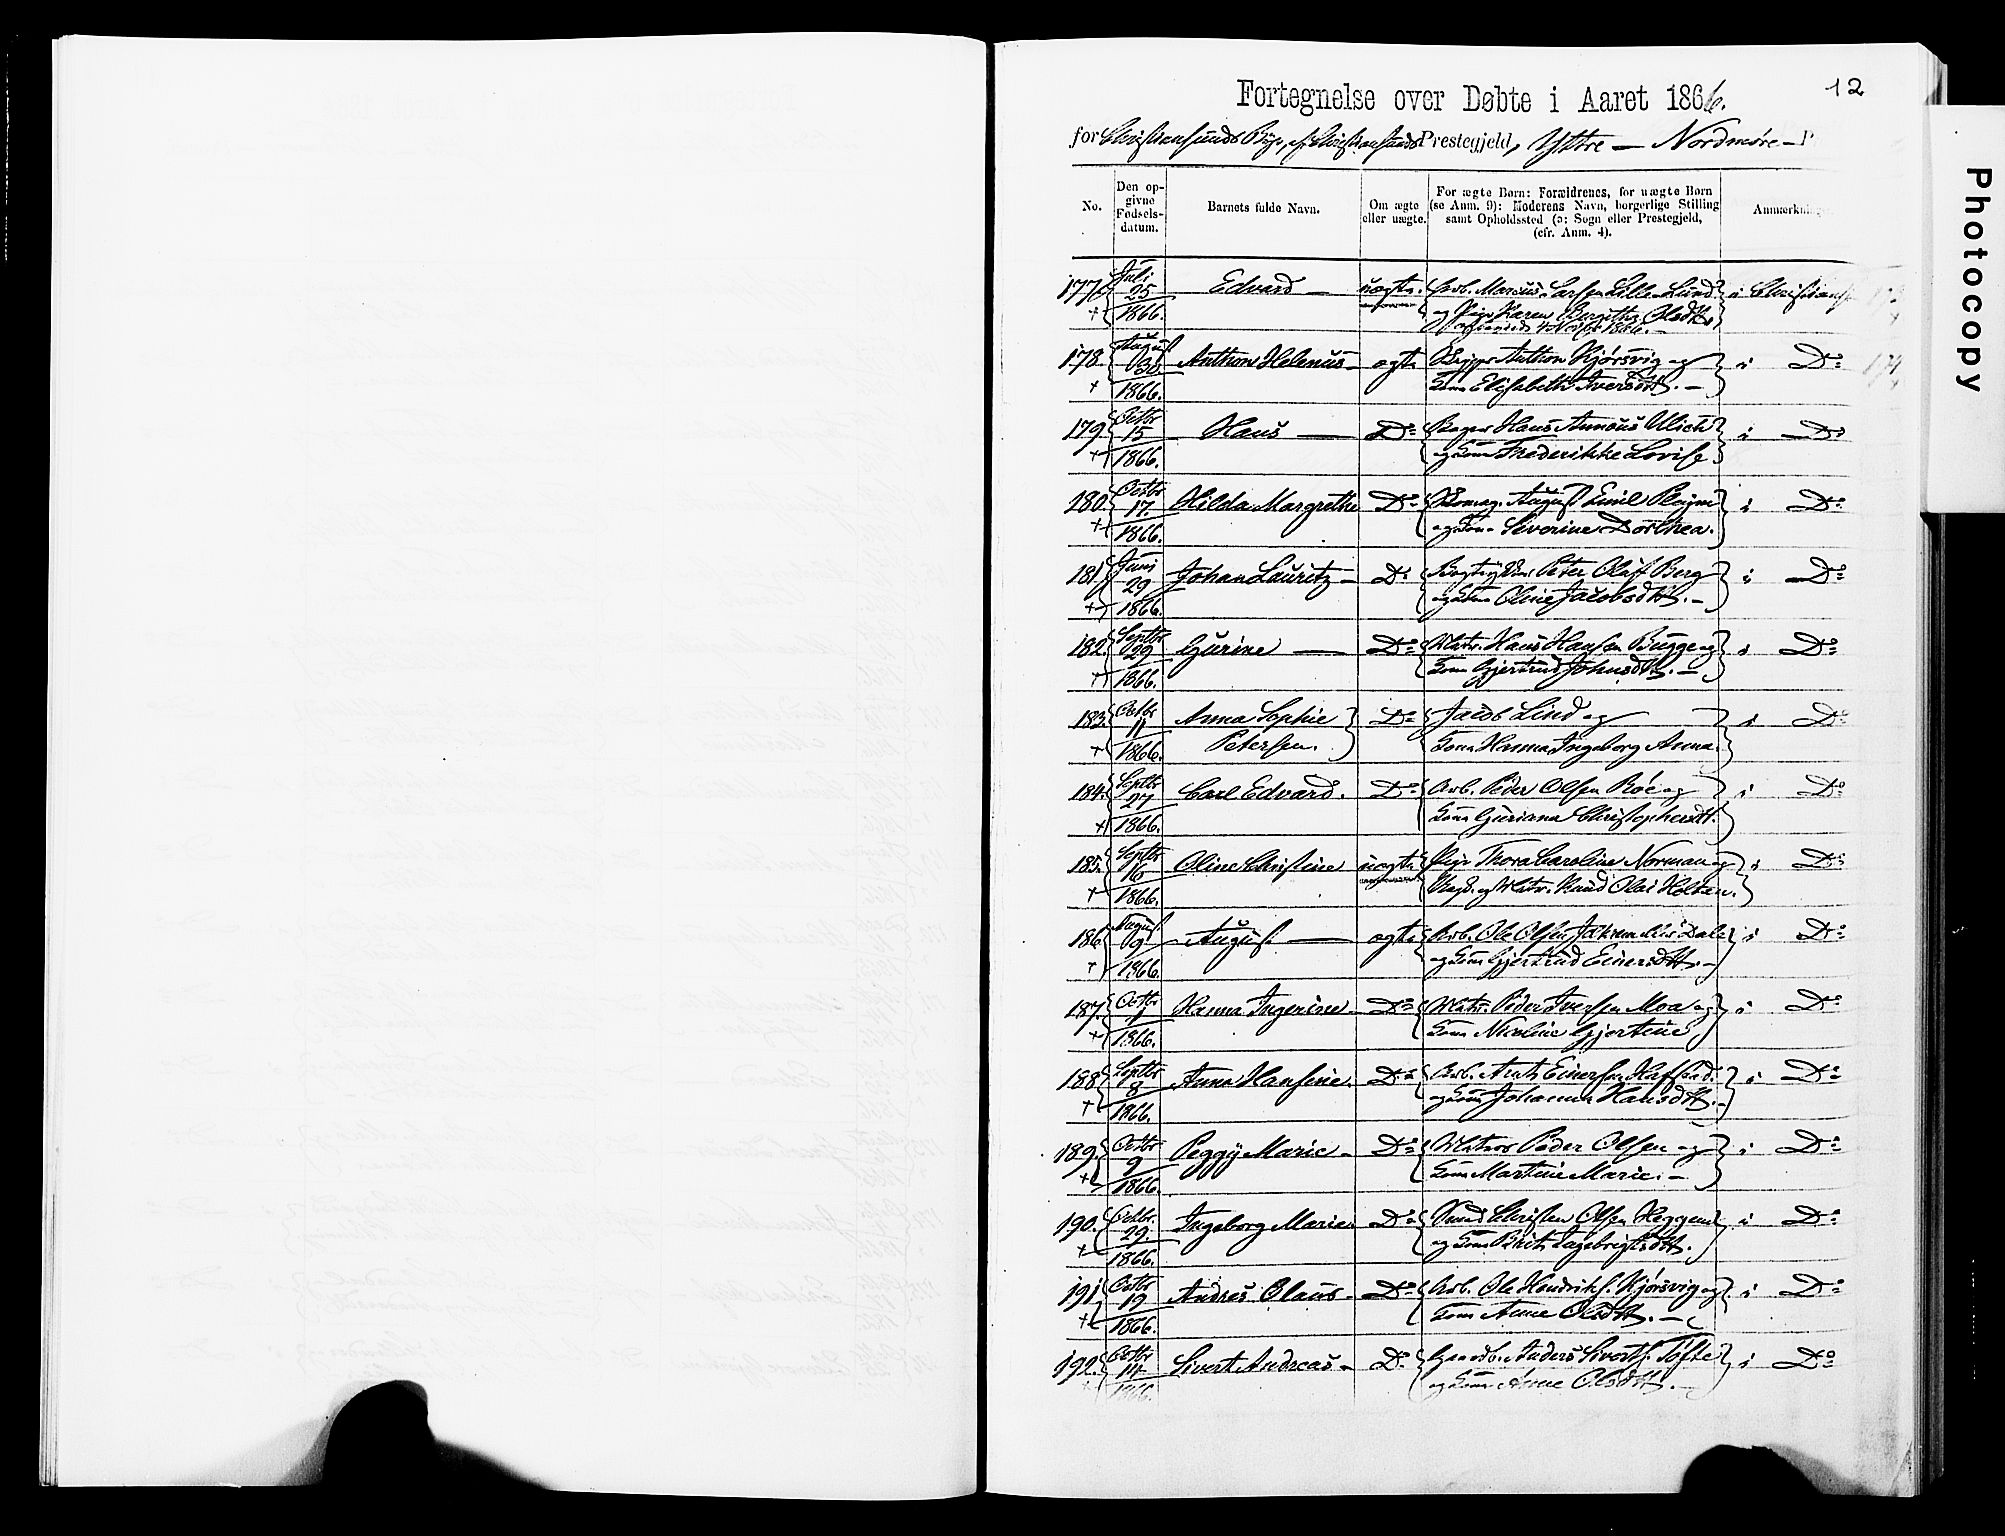 Fortegnelse over Døbte i Aaret 1866.
12
for Christiansunds By, af Christiansunds Prestegjeld, Yttre — Nordmøre – P
No.
Den op-
givne
Fødsels-
datum.
Barnets fulde Navn.
Om ægte
eller uægte.
For ægte Børn: Forældrenes, for uægte Børn
(se Anm. 9): Moderens Navn, borgerlige Stilling
samt Opholdssted (ɔ: Sogn eller Prestegjeld,
(cfr. Anm. 4).
Anmærkninge
177 Juli 25 1866. Edvard — uægte. Arb. Marcus Larsen Lille-Lund
og Pige Karen Olsdtr.
i Christiansu
178. August 30 1866. Anthon Helenus – ægte Anthon Kjørsvig og
Kone Elisabeth Iversdtr. –
i Do
179. Octbr 15 1866. Hans — Do Bager Hans Antonius Ulich
og Kone Frederikke Lovise
i Do
180. Octbr 17. 1866. Hilda Margrethe Do August Emil
og Kone Severine Dorthea.
i Do
181. Juni 29 1866. Johan Lauritz – Do Peter Olaf Berg
og Kone Oline Jacobsdtr. –
i Do
182. Septbr 29 1866. Gurine — Do Matr. Hans Hansen Bugge og
Kone Gjertrud Johnsdtr. –
i Do
183. Octbr 11 1866. Anna Sophie
Petersen.
Do Jacob Lind og
Kone Hanna Ingeborg Anna.
i Do
184. Septbr 27 1866. Carl Edvard. Do Arb. Peder Olsen Röe og
Kone Guriana Christophersdtr.
i Do
185. Septbr 16 1866. Oline Christine uægte Pige Thora Caroline Norman og
Ungk. og Matr. Knud Olai Holten.
i Do
186 August 9 1866. August — ægte Arb. Ole Olsen Dale
og Kone Gjertrud Einersdtr. –
i Do
187. Octbr 1 1866. Hanna Ingerine – Do Matr. Peder Iversen Moa og
Kone Nicoline Gjertine
i Do
188. Septbr 8 1866. Anna Hansine. Do Arb. Arnt Einersen Hafstad.
og Kone Johanna Hansdtr. –
i Do
189. Octbr 9 1866. Peggy Marie – Do Matros Peder Olsen og
Kone Martine Marie. –
i Do
190. Octbr. 29. 1866. Ingeborg Marie Do Christen Olsen Heggem
og Kone Brit Ingebrigtsdtr.
i Do
191. Octbr 19 1866. Andreas Olaus – Do Arb. Ole Hendriks. Kjørsvig og
Kone Anne Olsdtr. –
i Do
192. Octbr 14 1866. Sivert Andreas – Do Gaardb. Anders Siverts. Tøfte
og Kone Anne Olsdtr. –
i Do
Photocopy